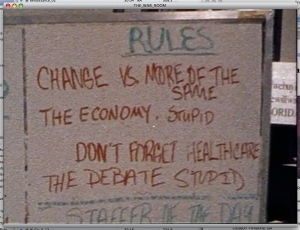 THE_WAR_ROOM
RULES
CHANGE VS. MORE OF THE
SAME
THE ECONOMY. STUPID
DON'T FORGET HEALTHCARE
THE DEBATE STUPID
STAFFER OF THE DAY